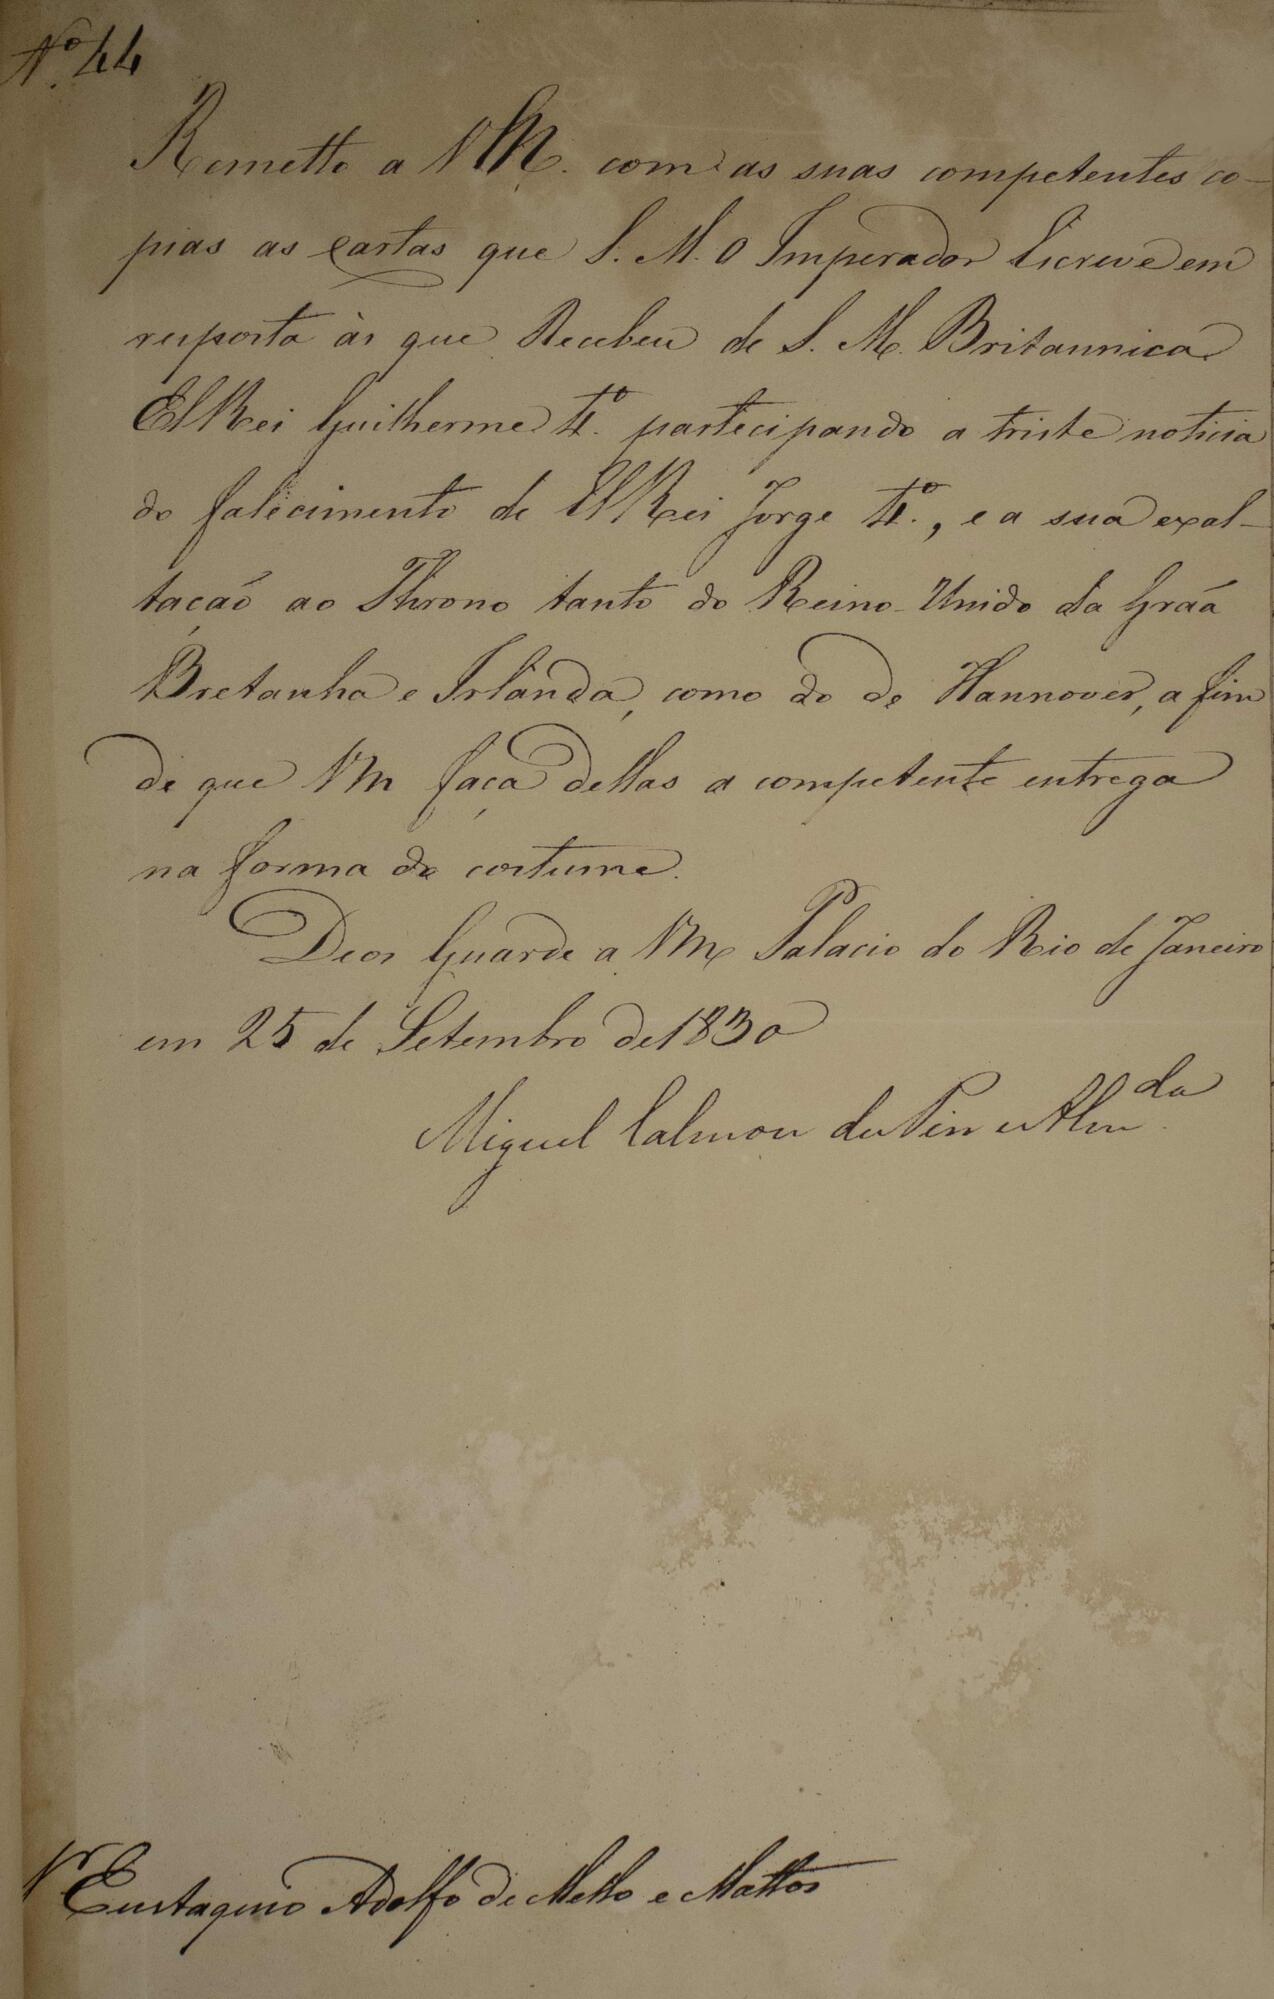 Nº 44
Remetto a VM. com as suas competentes co-
pias as cartas que S. M. O Imperador Escreve em
resposta às que Recebeu de S. M. Britannica
ElRei Guilherme 4º. partecipando a triste noticia
do falecimento de ElRei Jorge 4º., e a sua exal-
tação ao Throno tanto do Reino-Unido da Grãa
Bretanha e Irlanda, como do de Hannover, a fim
de que VM faça dellas a competente entrega
na forma do costume.
Deos Guarde a VM. Palacio do Rio de Janeiro
em 25 de Setembro de 1830
Miguel Calmon du Pin e Almda.
Sr Eustaquio Adolfo de Mello e Mattos